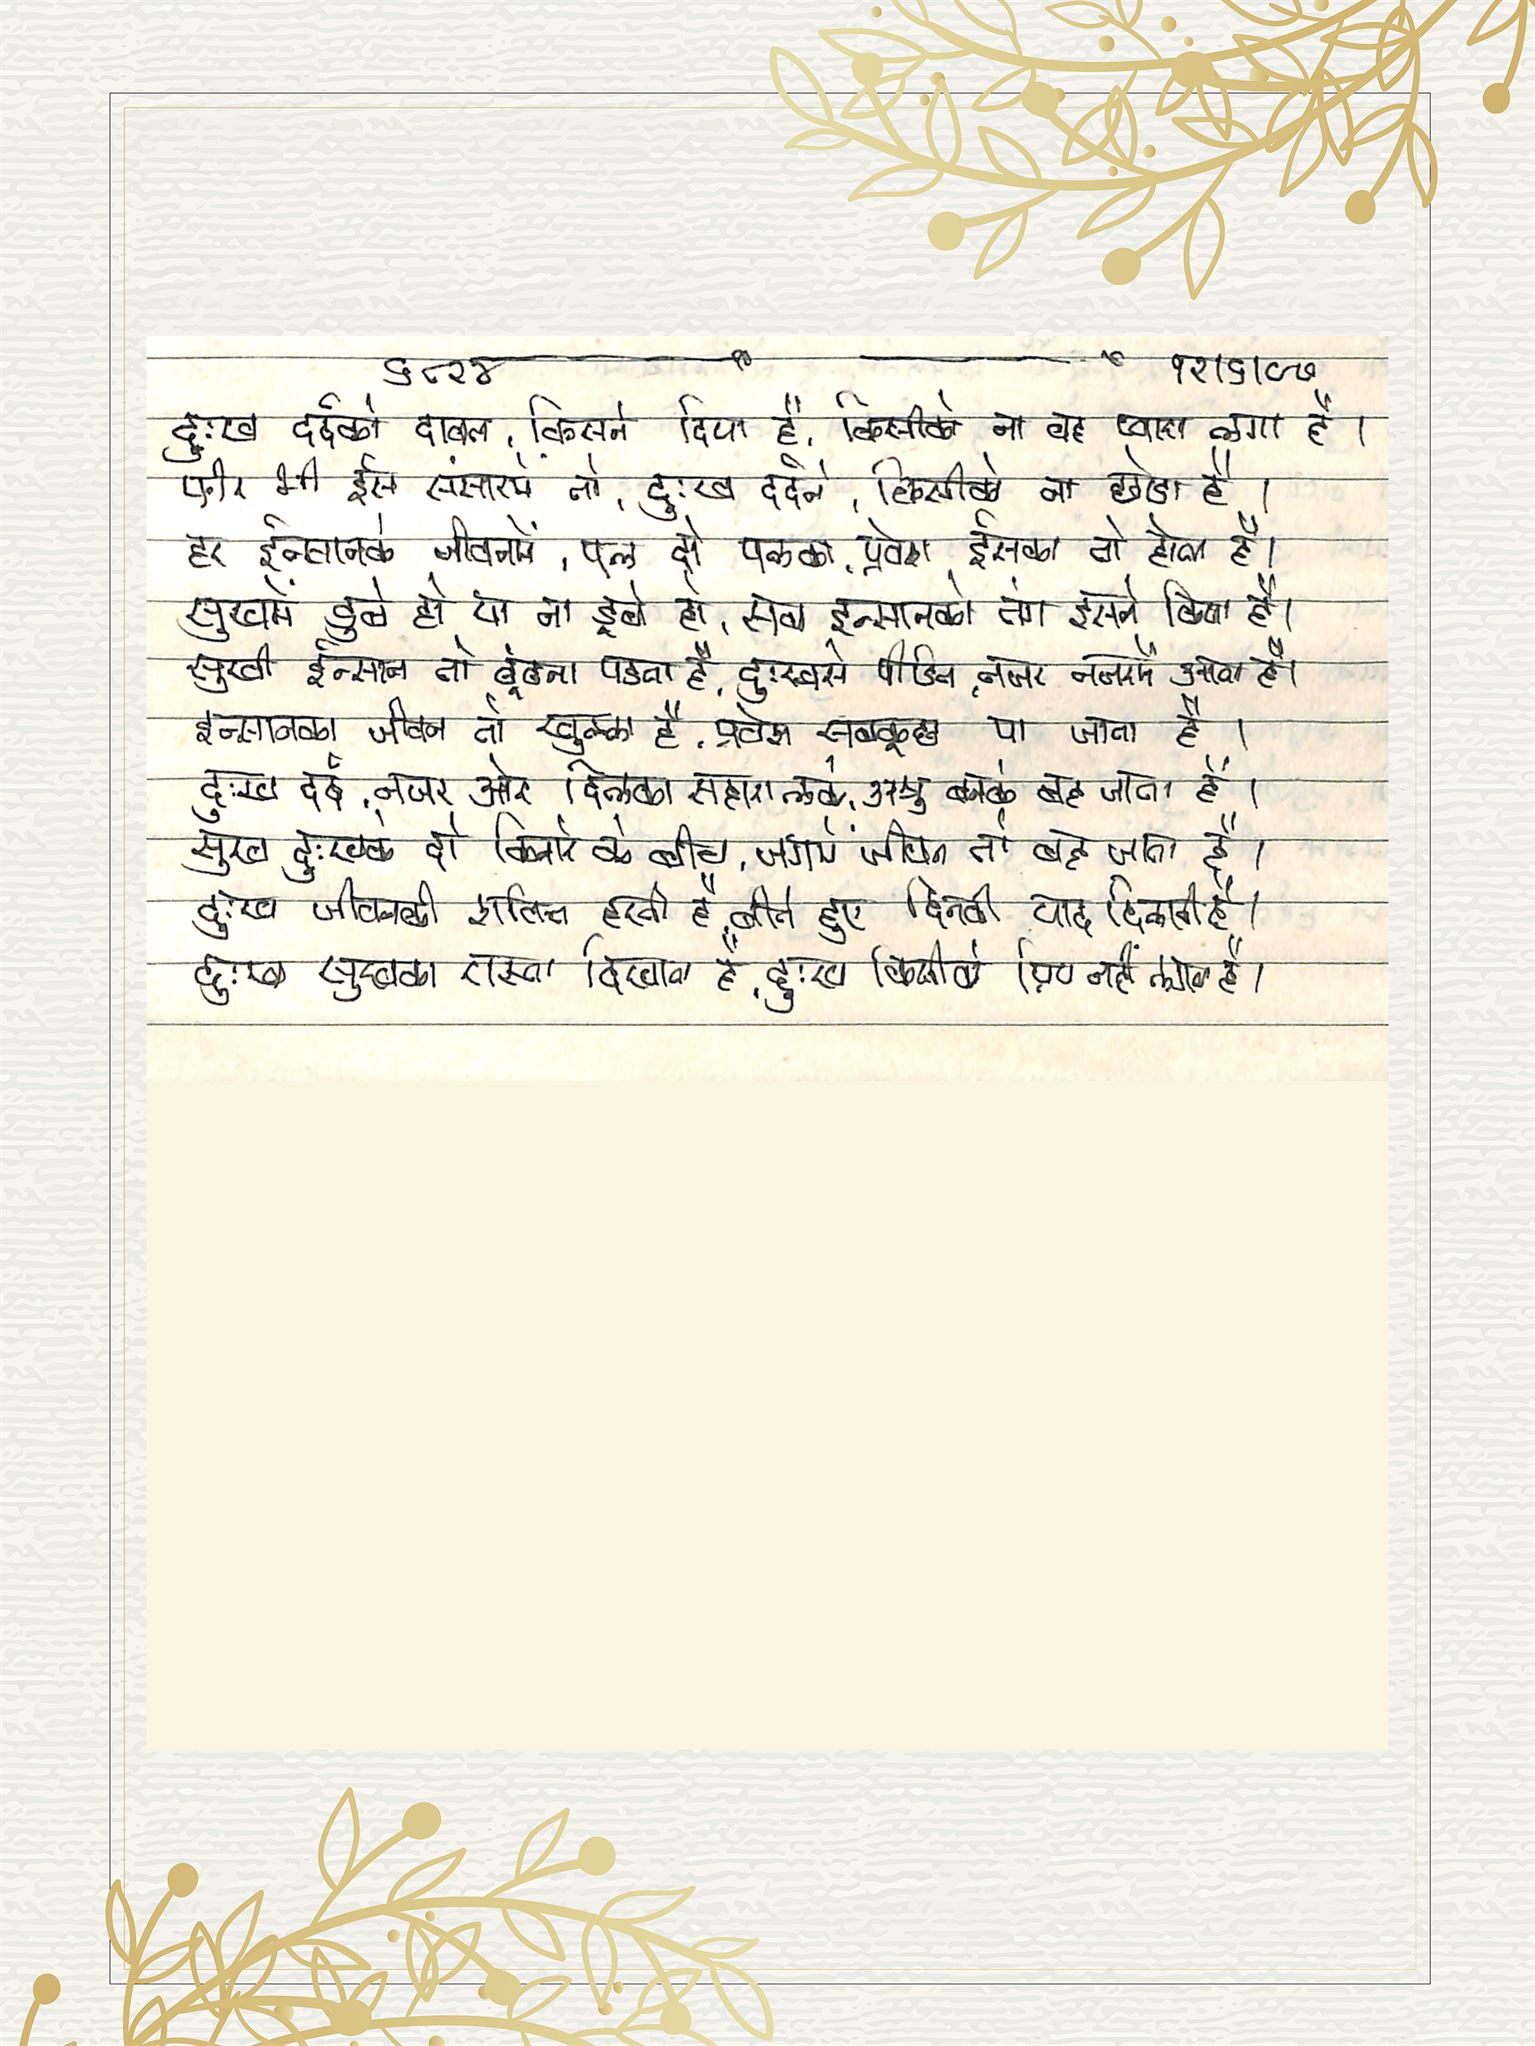 ६८२४ १२।६।८७
दुःख दर्दको दावत, किसने दिया है, किसीको ना वह प्यारा लगा है ।
फीर भी ईस संसारमें तो, दुःख दर्दने, किसीको ना छोडा है ।
हर ईन्सानके जीवनमें, पल दो पलका, प्रवेश ईसका तो होता है ।
सुखमें डुबे हो या ना डूबे हो, सब इन्सानको तंग इसने किया है ।
सुखी ईन्सान तो ढूंढना पडता है, दुःखसे पीडित, नजर नजरमें आता है ।
इन्सानका जीवन तो खुल्ला है, प्रवेश सबकुछ पा जाता है ।
दुःख दर्द, नजर और दिलका सहारा लेके, अश्रु बनके बह जाता है ।
सुख दुःखके दो किनारे के बीच, जगमें जीवन तो बह जाता है ।
दुःख जीवनकी शक्ति हरती है, बीते हुए दिनकी याद दिलाती है ।
दुःख सुखका रास्ता दिखाता है, दुःख किसीको प्रिय नहीं लगता है ।